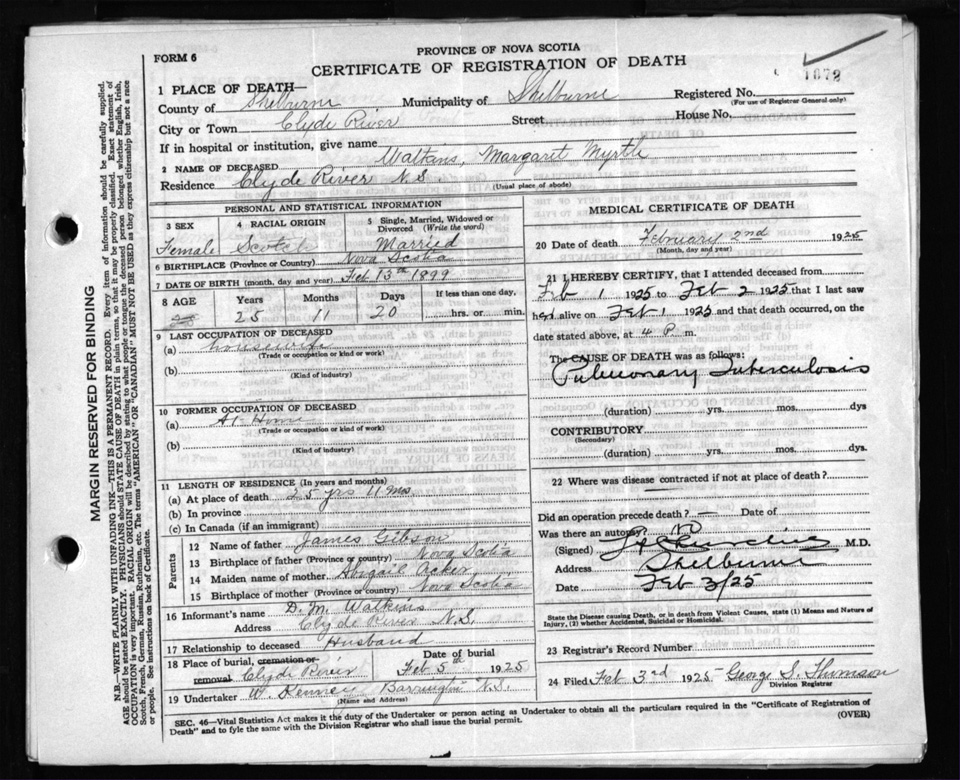 PROVINCE OF NOVA SCOTIA
FORM 6
CERTIFICATE OF REGISTRATION OF DEATH
1672
1 PLACE OF DEATH—
County of Shelburne Municipality of Shelburne Registered No.
(For use of Registrar General only)
City or Town Clyde River Street House No.
If in hospital or institution, give name
2 NAME OF DECEASED Watkans, Margaret Myrtle
Residence Clyde River N.S.
(Usual place of abode)
PERSONAL AND STATISTICAL INFORMATION
3 SEX 4 RACIAL ORIGIN 5 Single, Married, Widowed or Divorced (Write the word)
Female Scotch Married
6 BIRTHPLACE (Province or Country) Nova Scotia
7 DATE OF BIRTH (month, day and year) Feb 13th 1899
8 AGE Years Months Days If less than one day,
25 11 20 hrs. or min.
9 LAST OCCUPATION OF DECEASED
(a) housewife
(Trade or occupation or kind of work)
(b)
(Kind of industry)
10 FORMER OCCUPATION OF DECEASED
(a) At Home
(Trade or occupation or kind of work)
(b)
(Kind of industry)
11 LENGTH OF RESIDENCE (In years and months)
(a) At place of death 25 yrs 11 mos
(b) In province
(c) In Canada (if an immigrant)
Parents
12 Name of father James Gibson
13 Birthplace of father (Province or country) Nova Scotia
14 Maiden name of mother Abigail Acker
15 Birthplace of mother (Province or country) Nova Scotia
16 Informant's name D. M. Watkins
Address Clyde River N.S.
17 Relationship to deceased Husband
18 Place of burial, cremation or removal Clyde River Date of burial Feb 5th 1925
19 Undertaker W. Kenney Barrington N.S.
(Name and Address)
MEDICAL CERTIFICATE OF DEATH
20 Date of death February 2nd 1925
(Month, day and year)
21 I HEREBY CERTIFY, that I attended deceased from
Feb 1 1925 to Feb 2 1925 that I last saw
her alive on Feb 1 1925 and that death occurred, on the
date stated above, at 4 P. m.
The CAUSE OF DEATH was as follows:
Pulmonary Tuberculosis
(duration) yrs. mos. dys
CONTRIBUTORY
(Secondary)
(duration) yrs. mos. dys
22 Where was disease contracted if not at place of death?
Did an operation precede death? — Date of
Was there an autopsy? no
(Signed) M.D.
Address Shelburne
Date Feb 3/25
State the Disease causing Death, or in death from Violent Causes, state (1) Means and Nature of
Injury, (2) whether Accidental, Suicidal or Homicidal.
23 Registrar's Record Number
24 Filed Feb 3rd 1925 George S. Thomson
Division Registrar
SEC. 46—Vital Statistics Act makes it the duty of the Undertaker or person acting as Undertaker to obtain all the particulars required in the "Certificate of Registration of
Death" and to fyle the same with the Division Registrar who shall issue the burial permit.
(OVER)
MARGIN RESERVED FOR BINDING
N.B.—WRITE PLAINLY WITH UNFADING INK—THIS IS A PERMANENT RECORD. Every item of information should be carefully supplied.
AGE should be stated EXACTLY. PHYSICIANS should STATE CAUSE OF DEATH in plain terms, so that it may be properly classified. Exact statement of
OCCUPATION is very important. RACIAL ORIGIN will be described by stating to what people or tongue the deceased person belonged whether English, Irish,
Scotch, French, German, Russian, Ruthenian, etc. The terms "AMERICAN" or "CANADIAN" MUST NOT BE USED as they express citizenship but not a race
or people. See instructions on back of Certificate.